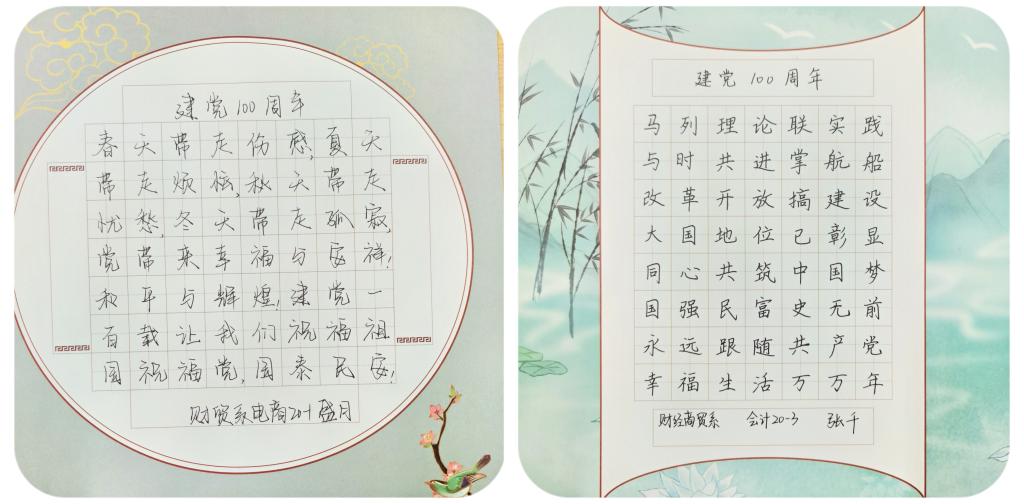 建党100周年
春天带走伤感,夏天
带走烦恼,秋天带走
忧愁,冬天带走孤寂,
党带来幸福与安祥!
和平与辉煌!建党一
百载让我们祝福祖
国祝福党,国泰民安!
财贸系电商20-1盛月
建党100周年
马列理论联实践
与时共进掌航船
改革开放搞建设
大国地位已彰显
同心共筑中国梦
国强民富史无前
永远跟随共产党
幸福生活万万年
财经商贸系 会计20-3 张千